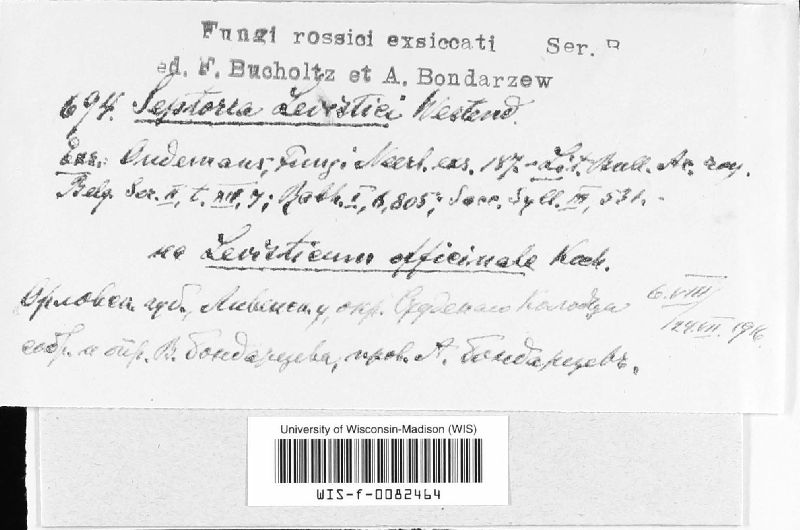 Fungi rossici exsiccati Ser. B
ed. F. Bucholtz et A. Bondarzew
694. Septoria Levistici Westend.
Exs.: Oudemans, Fungi Neerl. exs. 187. - Lit. Bull. Ac. roy.
Belg. Ser. II, t. XII, 7; Rabh. I, 6, 805; Sacc. Syll. III, 531. -
на Levisticum officinale Koch.
Орловск. губ., Ливенск. у, окр. Студенаго Колодца 6.VIII
/24.VII. 1916.
собр. и опр. В. Бондарцева, пров. А. Бондарцевъ.
University of Wisconsin-Madison (WIS)
WIS-f-0082464